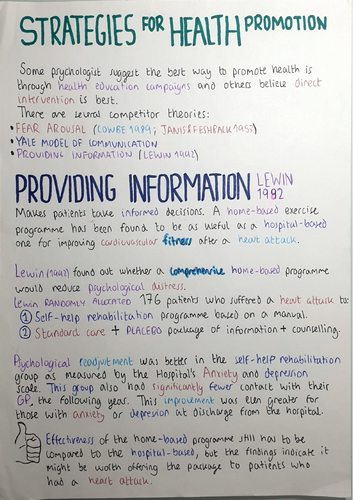 STRATEGIES FOR HEALTH PROMOTION
Some psychologist suggest the best way to promote health is
through health education campaigns and others believe direct
intervention is best.
There are several competitor theories:
• FEAR AROUSAL (COWBE 1989; JANIS&FESHBACK 1953)
• YALE MODEL OF COMMUNICATION
• PROVIDING INFORMATION (LEWIN 1992)
PROVIDING INFORMATION LEWIN
1992
Makes patients take informed decisions. A home-based exercise
programme has been found to be as useful as a hospital-based
one for improving cardiovascular fitness after a heart attack.
Lewin (1992) found out whether a comprehensive home-based programme
would reduce psychological distress.
Lewin RANDOMLY ALLOCATED 176 patients who suffered a heart attack to:
① Self-help rehabilitation programme based on a manual.
② Standard care + PLACEBO package of information + counselling.
Psychological readjustment was better in the self-help rehabilitation
group as measured by the Hospital's Anxiety and depression
scale. This group also had significantly fewer contact with their
GP, the following year. This improvement was even greater for
those with anxiety or depression at discharge from the hospital.
Effectiveness of the home-based programme still has to be
compared to the hospital-based, but the findings indicate it
might be worth offering the package to patients who
had a heart attack.